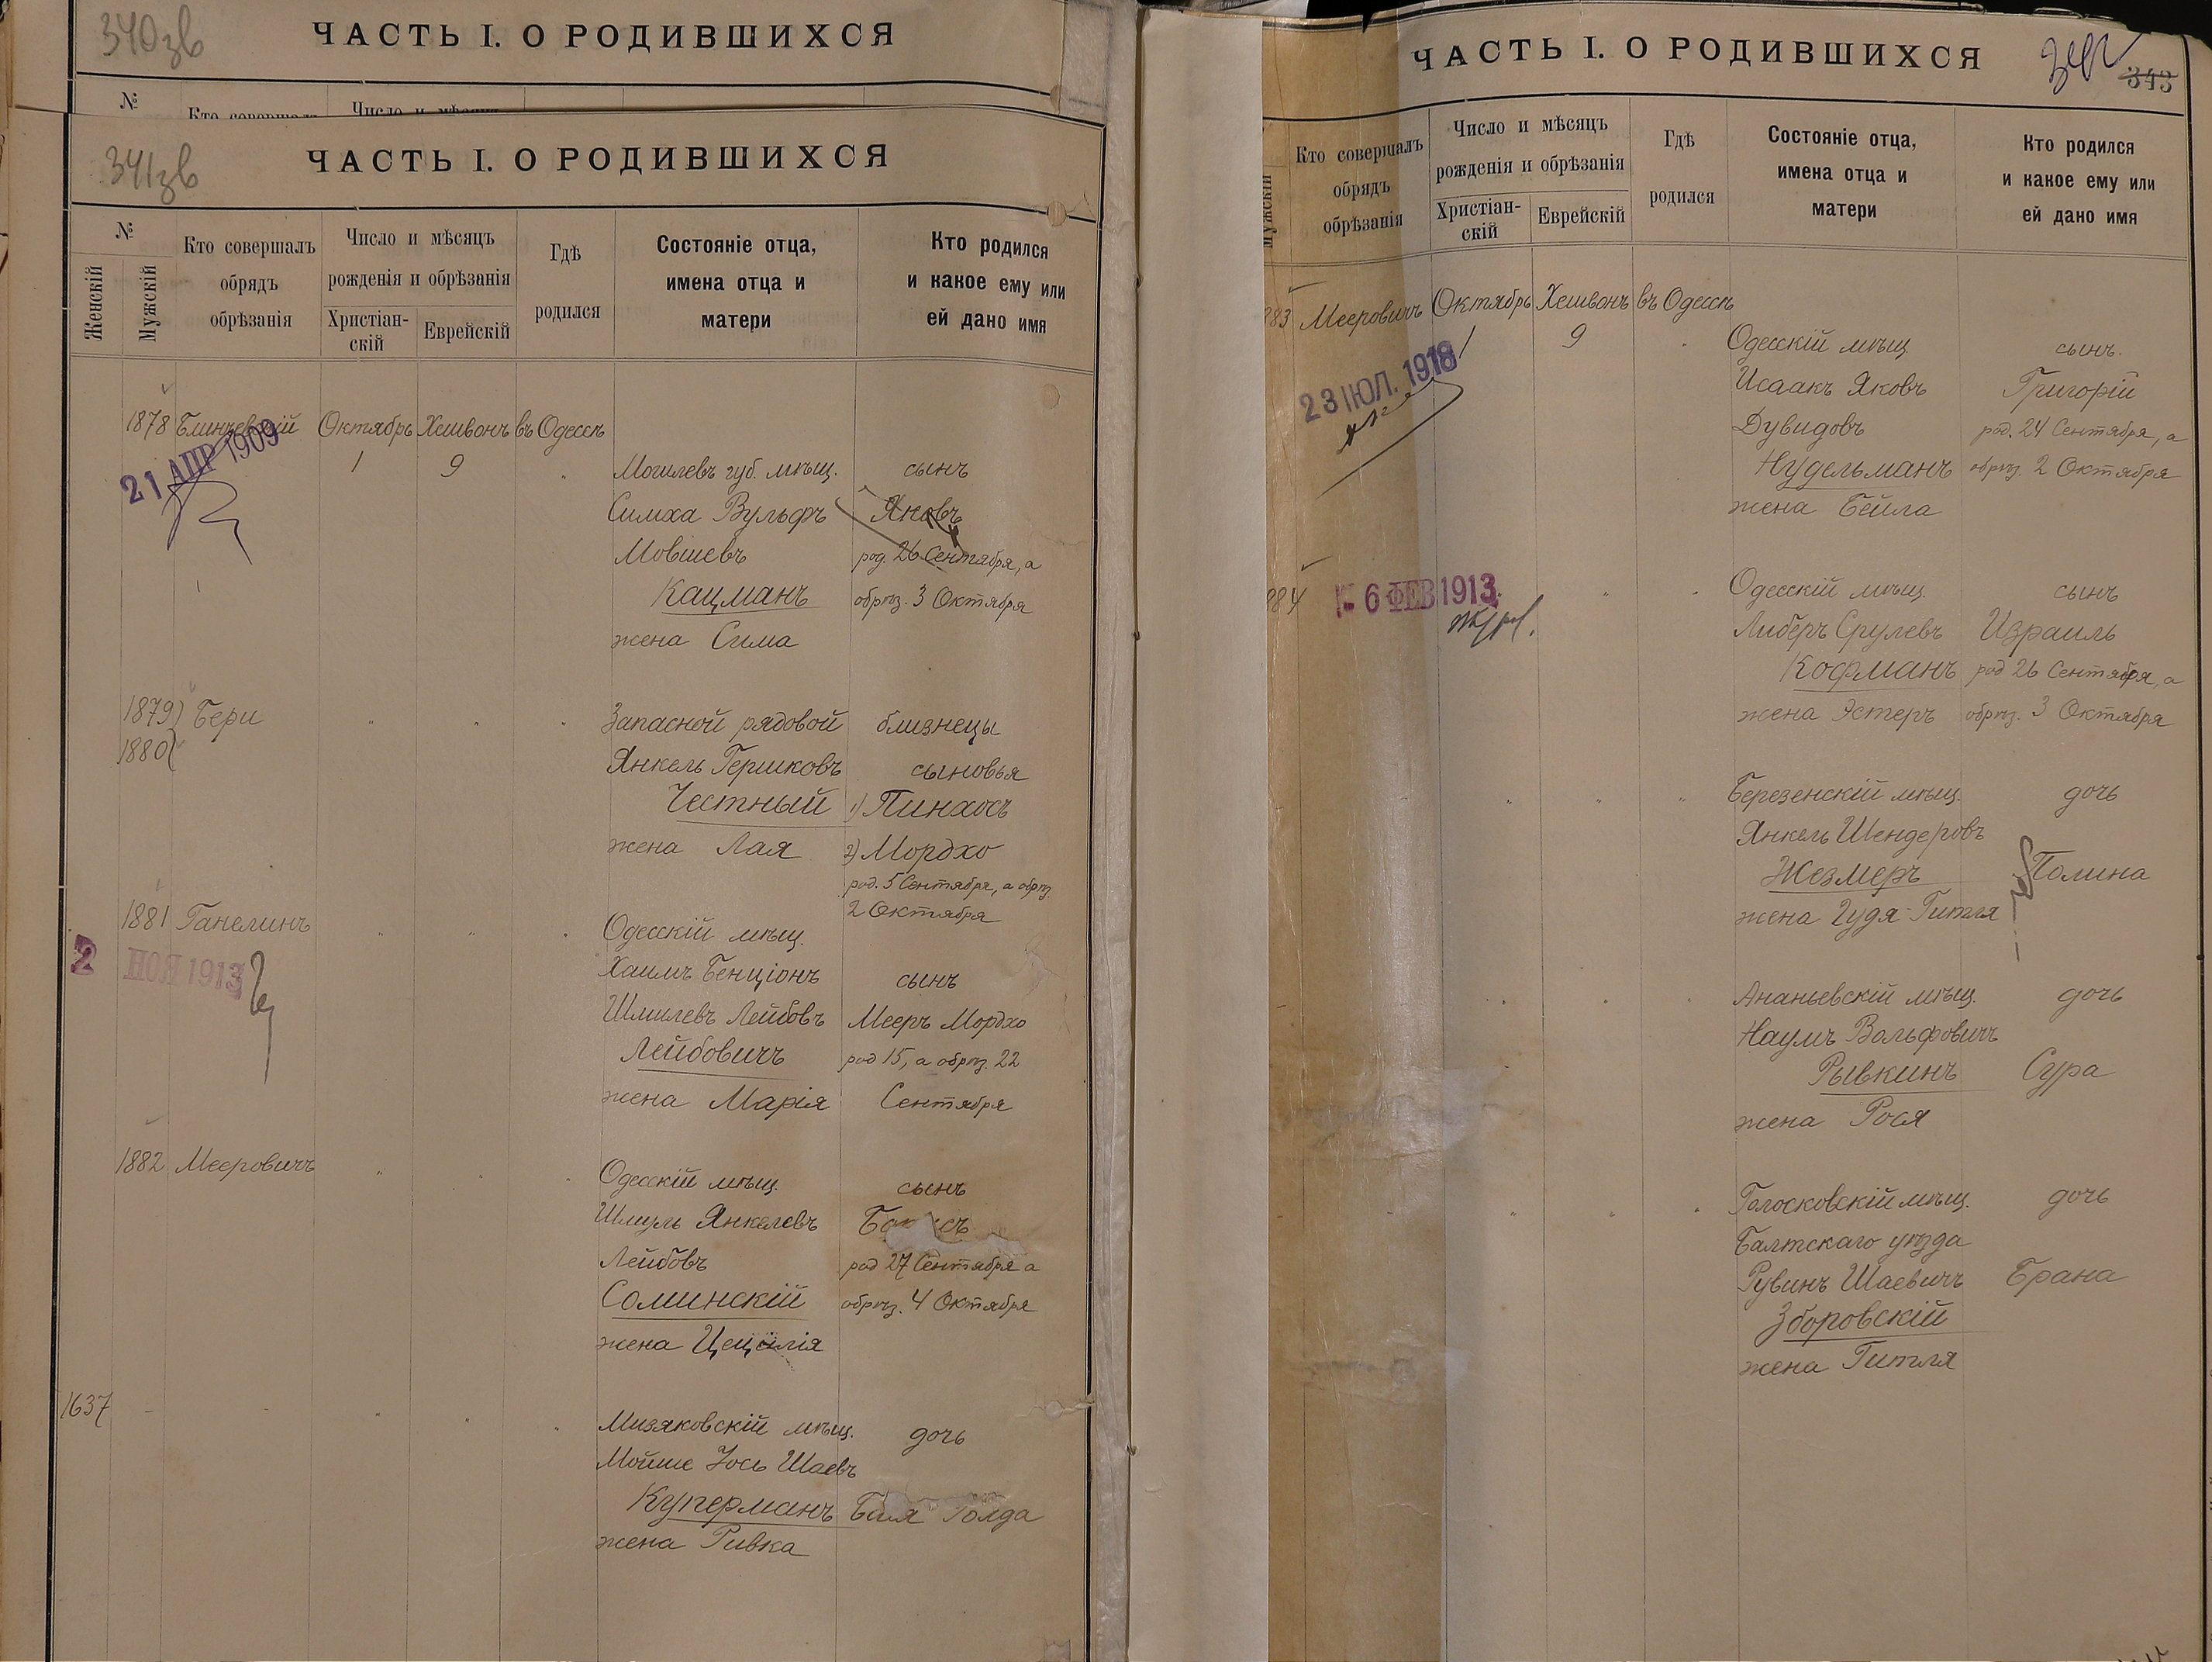 340зв
ЧАСТЬ I. О РОДИВШИХСЯ
№
341зв
ЧАСТЬ I. О РОДИВШИХСЯ
№
Женскій
Мужскій
Кто совершалъ
обрядъ
обрѣзанія
Число и мѣсяцъ
рожденія и обрѣзанія
Христіан-
скій
Еврейскій
Гдѣ
родился
Состояніе отца,
имена отца и
матери
Кто родился
и какое ему или
ей дано имя
1878 Октябрь Хешвонъ въ Одессѣ
21 АПР 1909
1 9 Могилевъ губ. мѣщ. сынъ
Симха Вульфъ Яковъ
Мовшевъ род. 26 Сентября, а
Кацманъ обрѣз. 3 Октября
жена Сима
1879) Бери " " " Запасной рядовой близнецы
1880(
Янкель Гершковъ сыновья
Честный 1) Пинхосъ
жена Лая 2) Мордхо
род. 5 Сентября, а обрѣз.
2 Октября
1881 Ганелинъ " " " Одесскій мѣщ.
2 НОЯ 1913
Хаимъ Бенціонъ сынъ
Шмилевъ Лейбовъ Мееръ Мордхо
Лейбовичъ род 15, а обрѣз. 22
жена Марія Сентября
1882 Мееровичъ " " " Одесскій мѣщ. сынъ
Шмуль Янкелевъ
Лейбовъ род 27 Сентября а
Соминскій обрѣз. 4 Октября
жена Цецилія
1637 - - " " " Мизяковскій мѣщ. дочь
Мойше Іось Шаевъ
Куперманъ Голда
жена Ривка
ЧАСТЬ I. О РОДИВШИХСЯ
343
Мужскій
Кто совершалъ
обрядъ
обрѣзанія
Число и мѣсяцъ
рожденія и обрѣзанія
Христіан-
скій
Еврейскій
Гдѣ
родился
Состояніе отца,
имена отца и
матери
Кто родился
и какое ему или
ей дано имя
883 Мееровичъ Октябрь Хешвонъ въ Одессѣ
1 9 Одесскій мѣщ. сынъ.
23 ІЮЛ. 1918
Исаакъ Яковъ Григорій
Дувидовъ род. 24 Сентября, а
Нудельманъ обрѣз. 2 Октября
жена Бейла
884 6 ФЕВ 1913 " " Одесскій мѣщ. сынъ
Либеръ Срулевъ Израиль
Кофманъ род 26 Сентября, а
жена Эстеръ обрѣз. 3 Октября
" " " Березенскій мѣщ. дочь
Янкель Шендеровъ
Жезмеръ Полина
жена Гудя-Гитля
" " " Ананьевскій мѣщ. дочь
Наумъ Вольфовичъ
Рывкинъ Сура
жена Рося
" " " Голосковскій мѣщ. дочь
Балтскаго уѣзда
Рувинъ Шаевичъ Брана
Зборовскій
жена Гитля